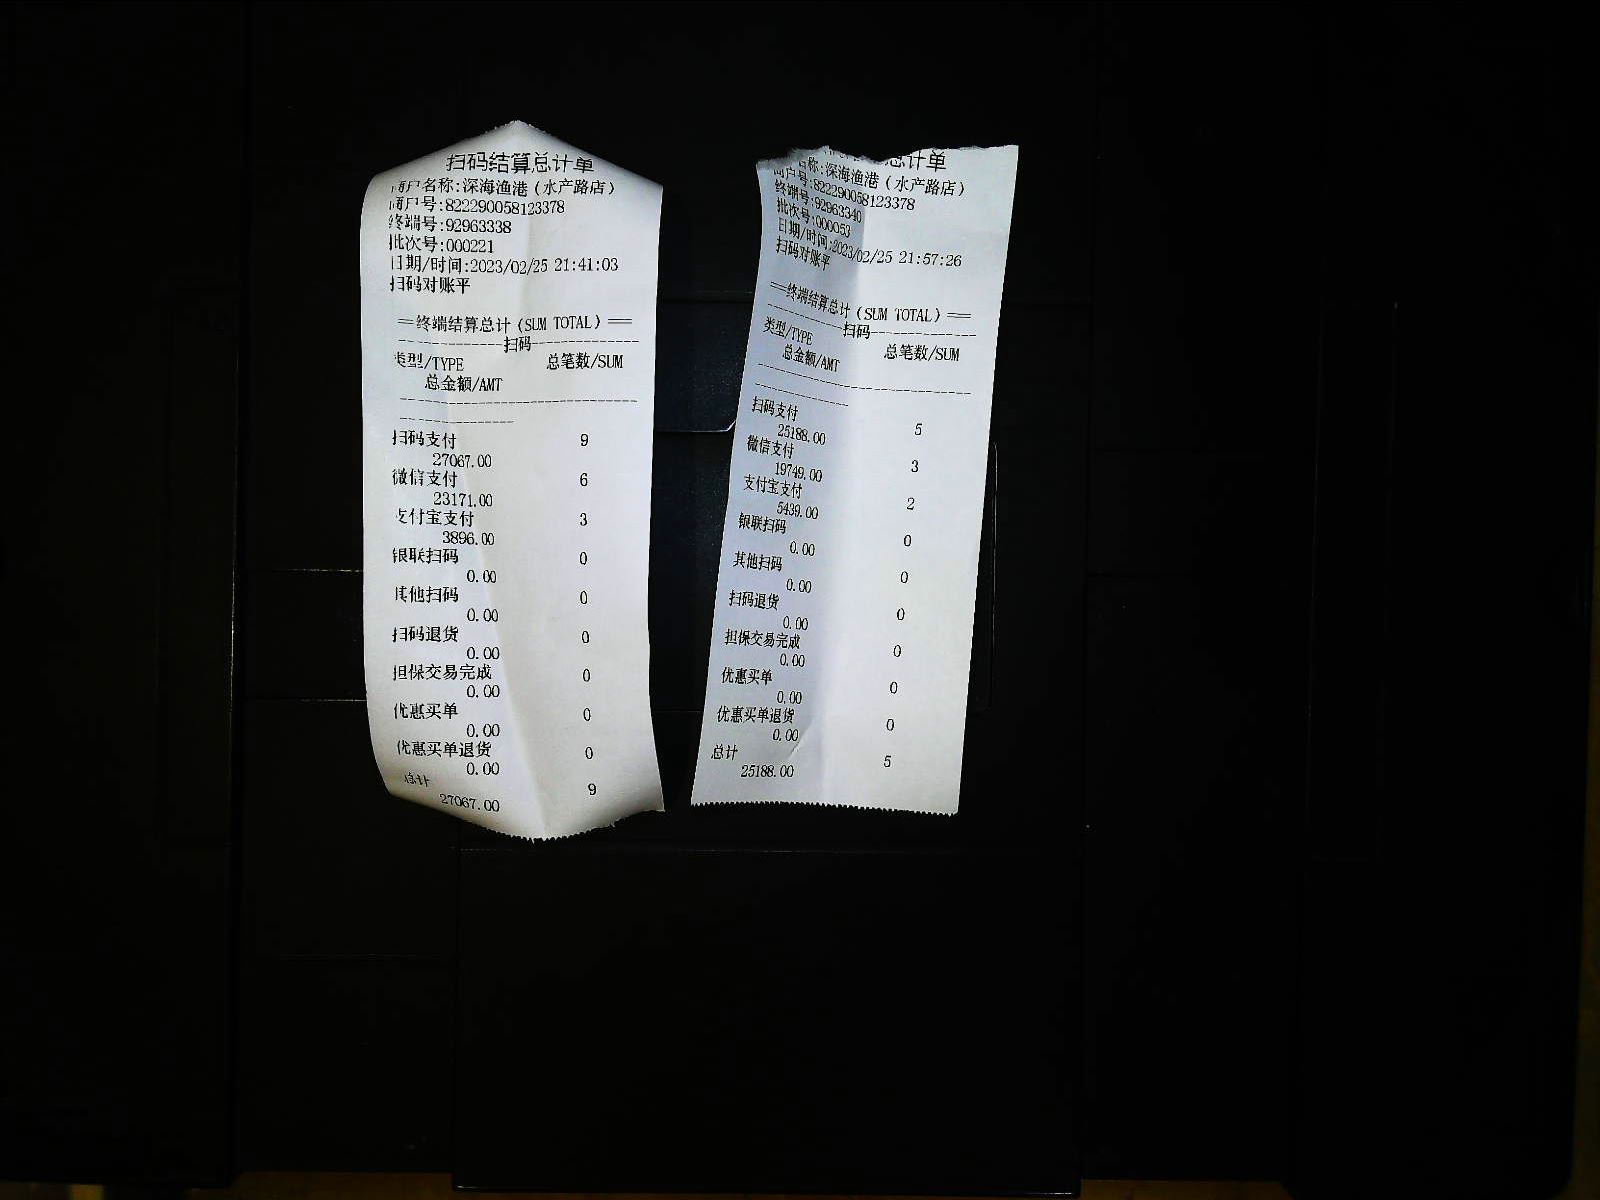 扫码结算总计单
商户名称:深海渔港(水产路店)
商户号:822290058123378
终端号:92963338
批次号:000221
日期/时间:2023/02/25 21:41:03
扫码对账平
==终端结算总计(SUM TOTAL)==
---------------扫码---------------
类型/TYPE 总笔数/SUM
总金额/AMT
扫码支付 9
27067.00
微信支付 6
23171.00
支付宝支付 3
3896.00
银联扫码 0
0.00
其他扫码 0
0.00
扫码退货 0
0.00
担保交易完成 0
0.00
优惠买单 0
0.00
优惠买单退货 0
0.00
总计 9
27067.00
总计单
名称:深海渔港(水产路店)
商户号:822290058123378
终端号:92963340
批次号:000053
日期/时间:2023/02/25 21:57:26
扫码对账平
==终端结算总计(SUM TOTAL)==
---------------扫码---------------
类型/TYPE 总笔数/SUM
总金额/AMT
扫码支付 5
25188.00
微信支付 3
19749.00
支付宝支付 2
5439.00
银联扫码 0
0.00
其他扫码 0
0.00
扫码退货 0
0.00
担保交易完成 0
0.00
优惠买单 0
0.00
优惠买单退货 0
0.00
总计 5
25188.00